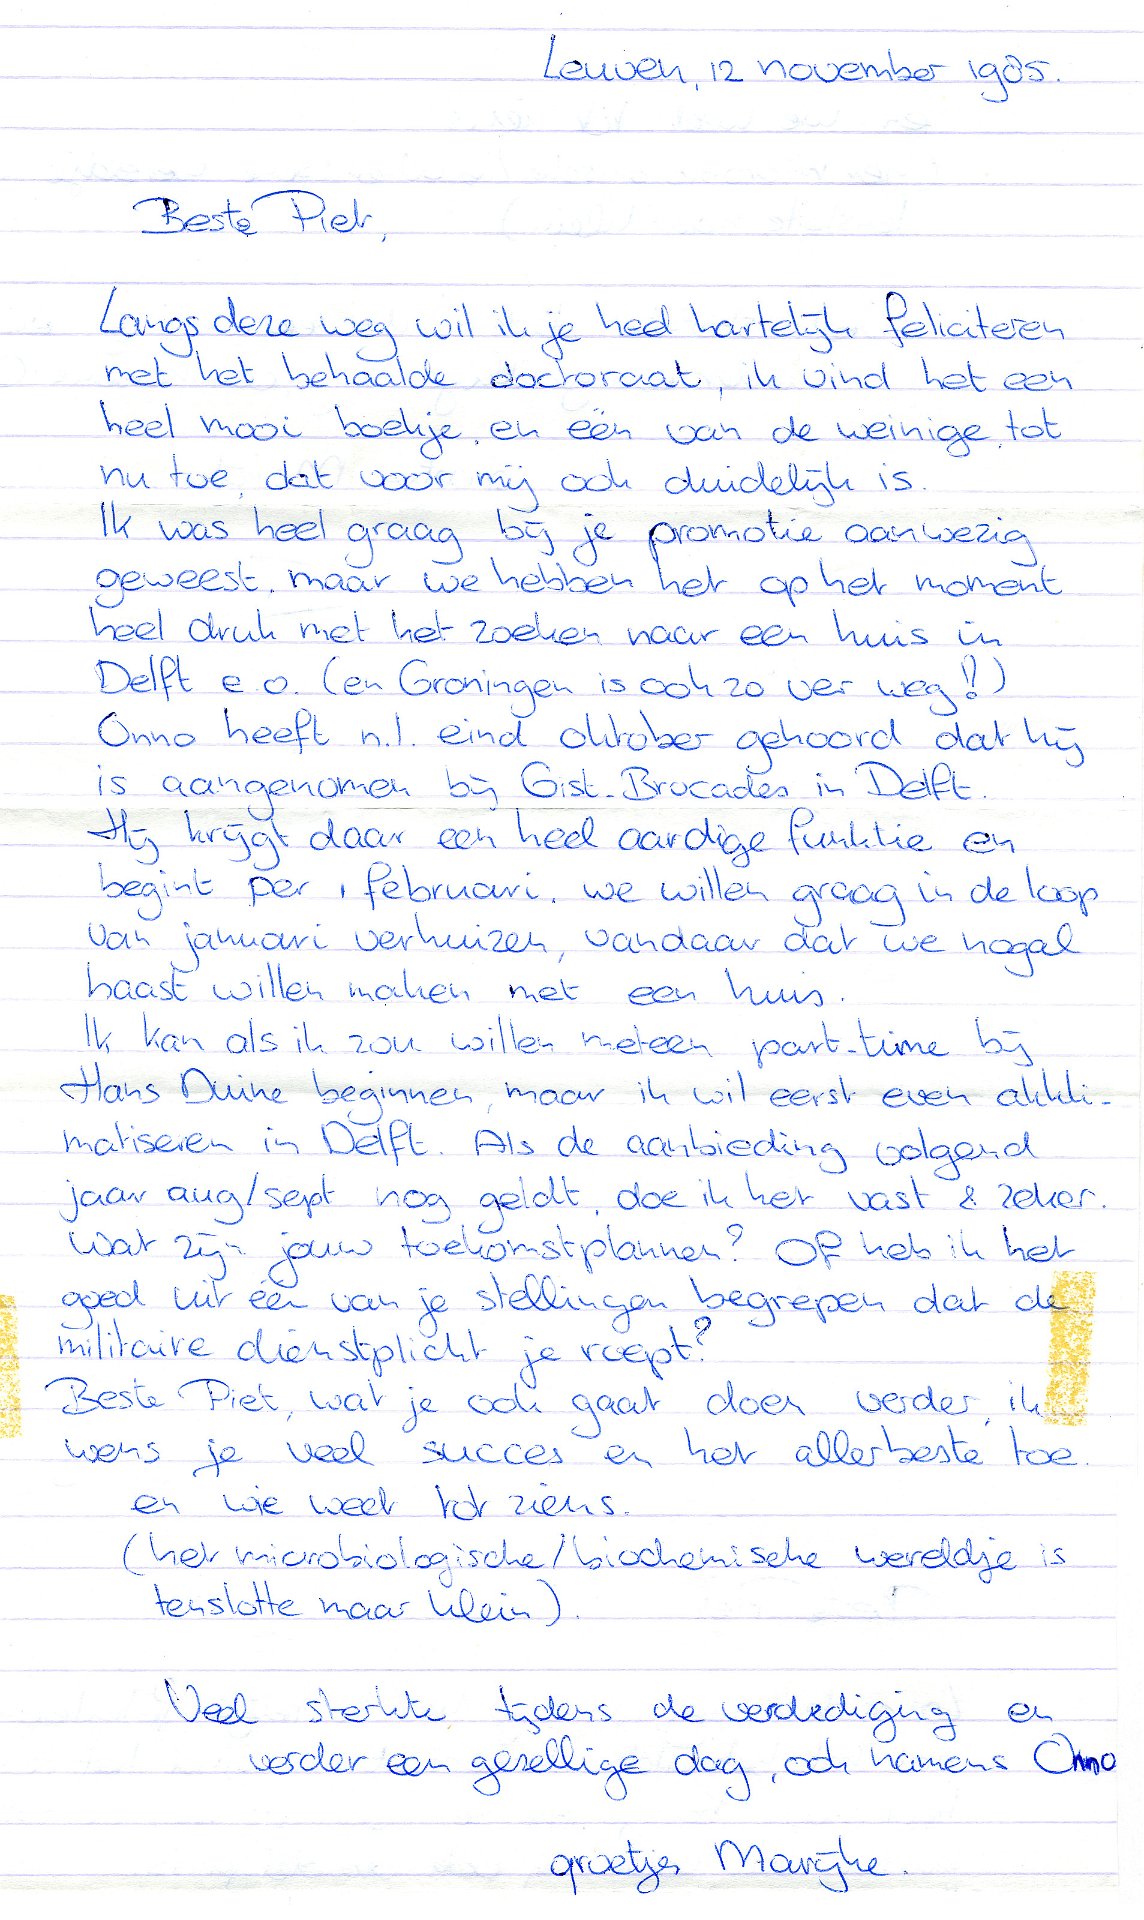 Leuven, 12 november 1985.
Beste Piet,
Langs deze weg wil ik je heel hartelijk feliciteren
met het behaalde doctoraat, ik vind het een
heel mooi boekje, en één van de weinige, tot
nu toe, dat voor mij ook duidelijk is.
Ik was heel graag bij je promotie aanwezig
geweest, maar we hebben het op het moment
heel druk met het zoeken naar een huis in
Delft e.o. (en Groningen is ook zo ver weg!!)
Onno heeft n.l. eind oktober gehoord dat hij
is aangenomen bij Gist-Brocades in Delft.
Hij krijgt daar een heel aardige funktie en
begint per 1 februari. we willen graag in de loop
van januari verhuizen, vandaar dat we nogal
haast willen maken met een huis.
Ik kan als ik zou willen meteen part-time bij
Hans Duine beginnen, maar ik wil eerst even akkli-
matiseren in Delft. Als de aanbieding volgend
jaar aug/sept nog geldt, doe ik het vast & zeker.
Wat zijn jouw toekomstplannen? Of heb ik het
goed uit één van je stellingen begrepen dat de
militaire dienstplicht je roept?
Beste Piet, wat je ook gaat doen verder, ik
wens je veel succes en het allerbeste toe.
en wie weet tot ziens.
(het microbiologische/biochemische wereldje is
tenslotte maar klein).
Veel sterkte tijdens de verdediging en
verder een gezellige dag, ook namens Onno
groetjes Marijke.